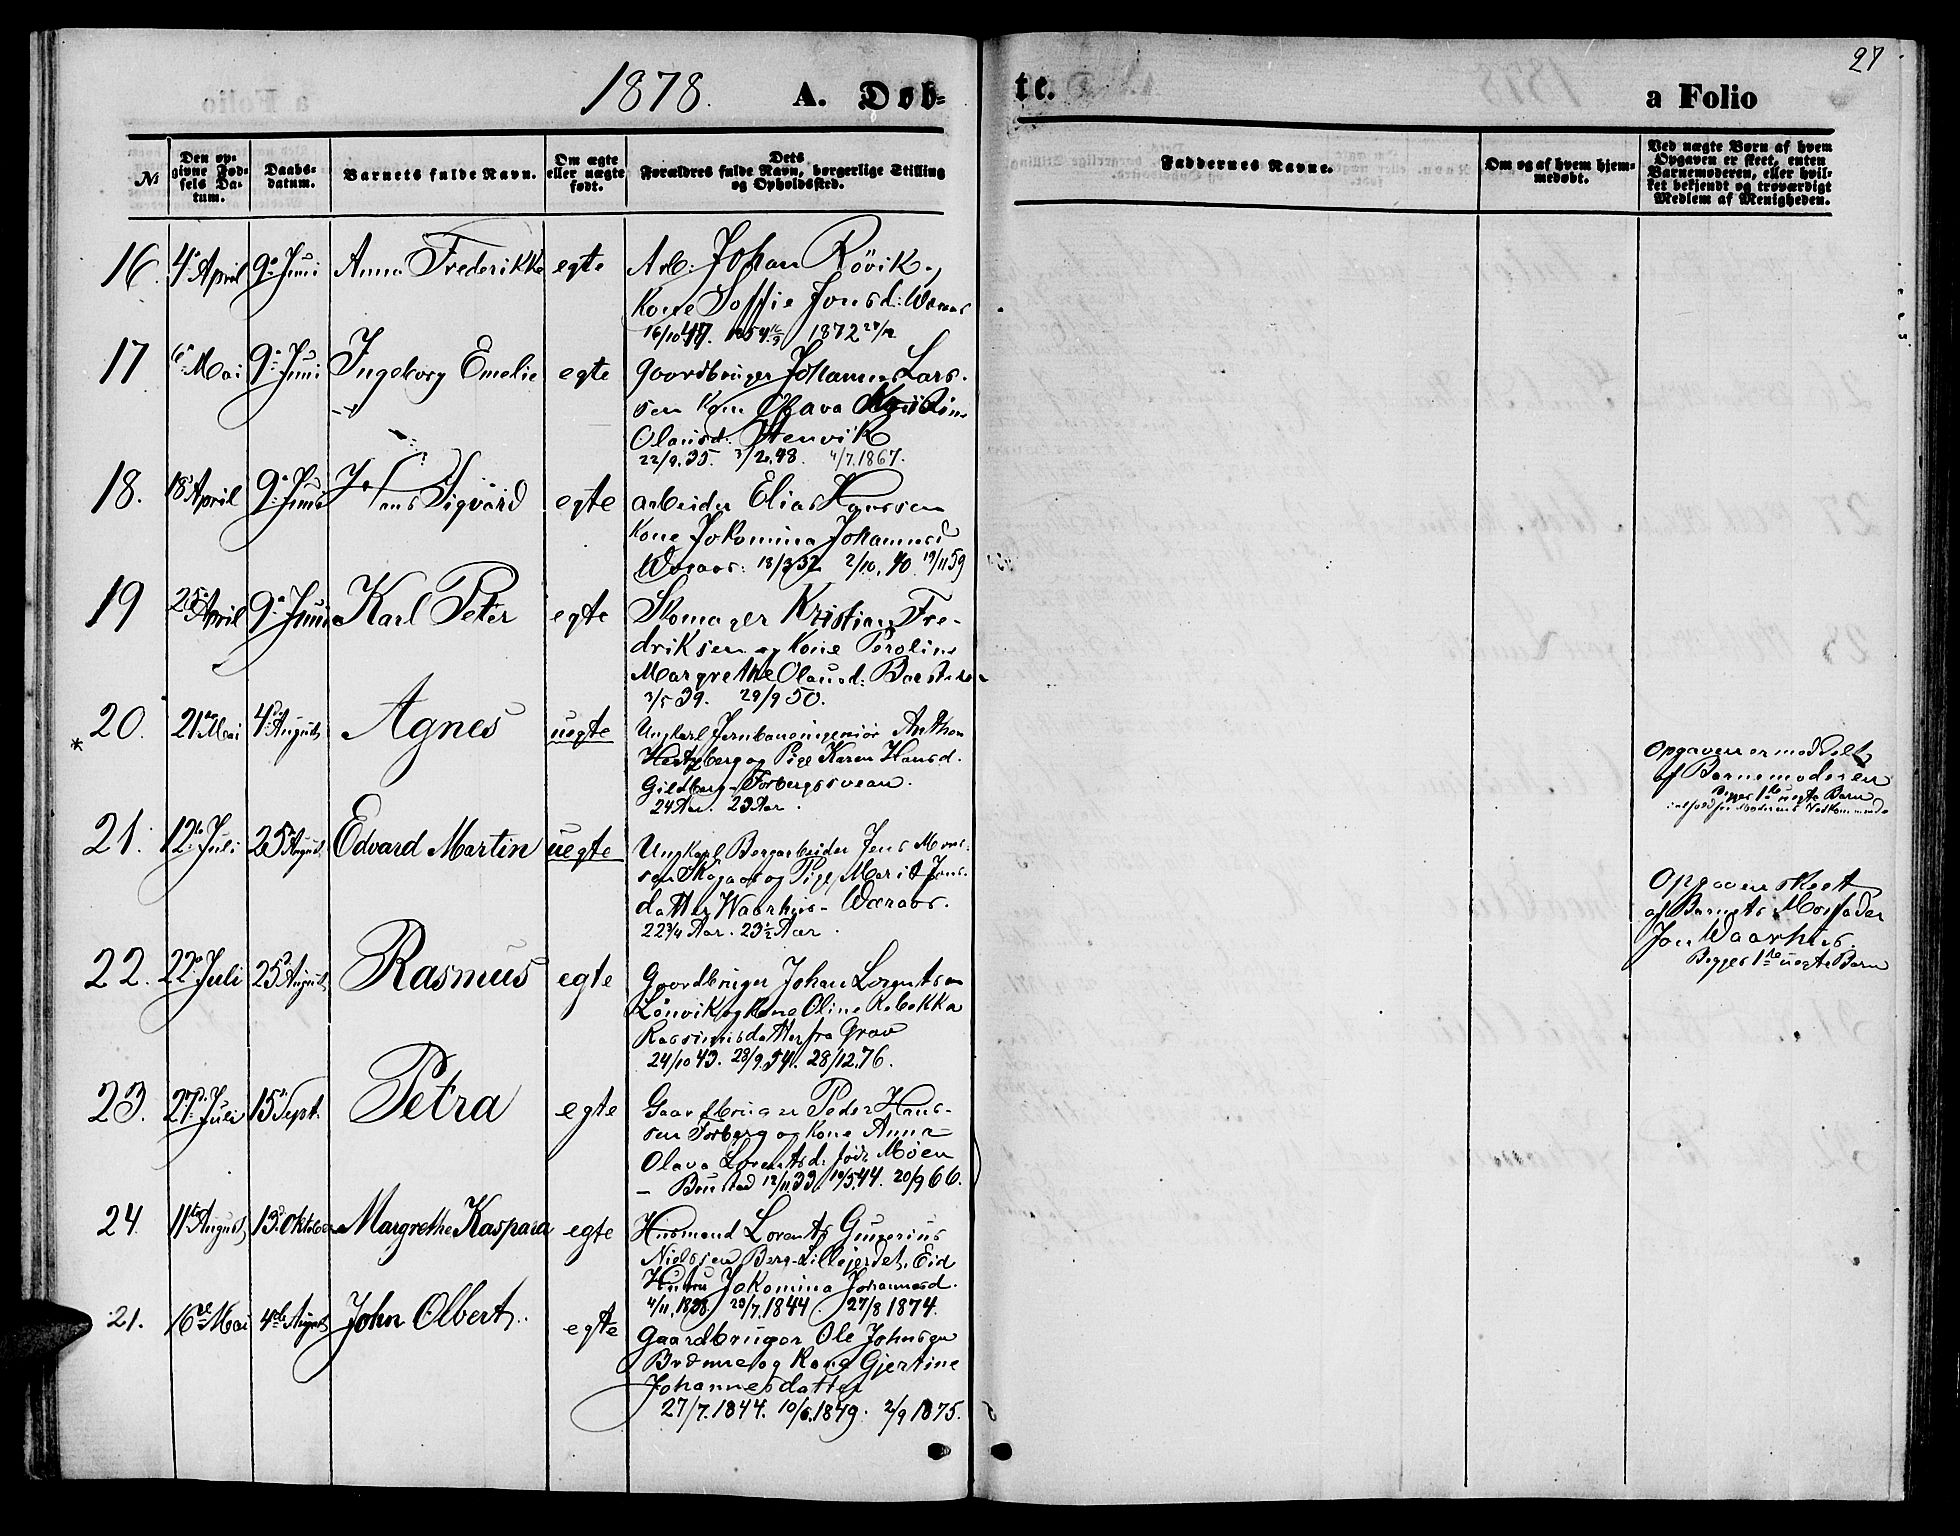 1878. A. Døbte. a Folio 27
№
Den opgivne Fødsels Datum.
Daabsdatum.
Barnets fulde Navn.
Om ægte eller uægte født.
Dets Forældres fulde Navn, borgerlige Stilling og Opholdssted.
Faddernes Navne.
Om og af hvem hjemmedøbt.
Ved uægte Børn af hvem Opgaven er skeet, enten Barnemoderen, eller hvilket bekjendt og troværdigt Medlem af Menigheden.
16. 4de April 9de Juni Anna Frederikke egte Arb: Johan Rövik,
Kone Soffie Jonsd: Wæraas
1872
17 6te Mai 9de Juni Ingeborg Emelie egte Goordbruger Johannes Lars-
sen Kone Olava
Olausd: Stenvik
22/9.35. 48. 4/7.1867.
18. 18de April 9de Juni Jo Sigvard egte arbeider Elias Hanssen
Kone Jokomina Johannesd
Wæraas: 2/10.40 19/11 59
19 25de April 9de Juni Karl Peter egte Skomager Kristian Fre-
driksen og Kone Peroline
Margrethe Olausd:
3/5 39. 29/9 50.
* 20. 21de Mai 4de August Agnes uegte Ungkarl Jernbaneingeniør Anthon
Hertzberg og Pige Karen Hansd.
Gildberg-Forbergssvean.
24 Aar. 23 Aar.
Opgaven er meddelt
af Barnemoderen
Begges 1ste uegte Barn
21. 12te Juli 25de August Edvard Martin uegte Ungkarl Bergarbeider Jens
Skogaas og Pige Marit Jons-
datter Waarhus - Wæraas.
22 3/4 Aar. 23 1/2 Aar.
Opgaven skeet
af Barnets Morfader
Jon Waarhus.
Begges 1ste uegte Barn
22. 22de Juli 25de August Rasmus egte Goordbruger Johan Lorentsen
Lönvik og Kone Oline Rebekka
Rassmusdatter fra Grav
24/10 43. 28/9.54. 28/12.76.
23. 27de Juli 15de Sept. Petra egte Gaardbruger Peder Hans-
sen Forberg og Kone Anna
Olava Lorentsd: født Moen
12/11.33 19/5.44. 20/9 66.
24. 11te August 13de Oktober Margrethe Kaspara egte Husmand Lorents Gunerius
Nielssen Berg-Lillejerdet, Eid
Hustru Jokomina Johannesd.
4/11.1838 29/7.1844. 27/8 1874.
21. 16de Mai 4de August John Olbert. egte Gaardbruger Ole Johnsen
Brænne og Kone Gjertine
Johannesdatter
27/7.1844. 10/6.1849. 2/9 1875.